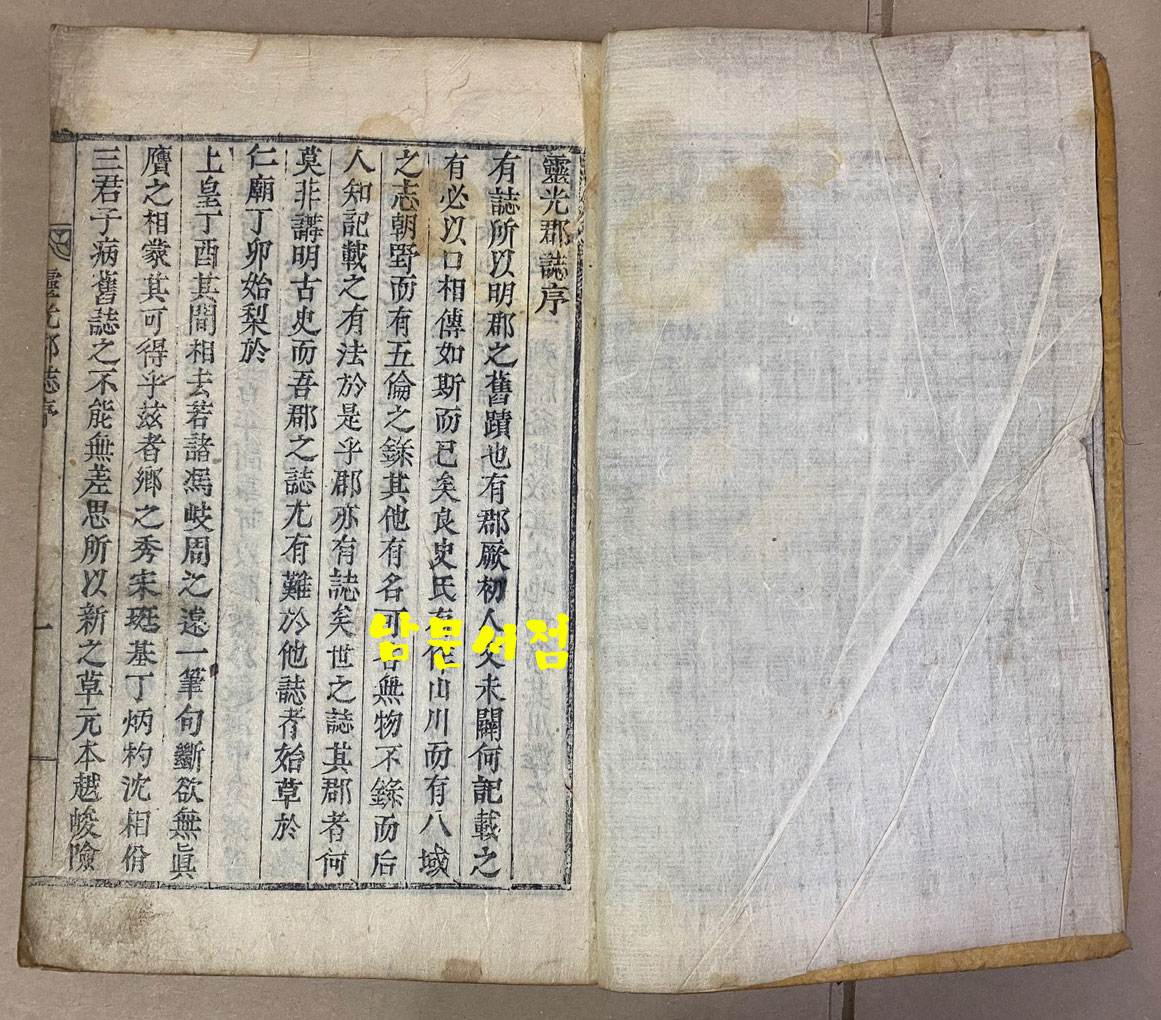 靈光郡誌序
有誌所以明郡之舊蹟也有郡厥初人文未闢何記載之
有必以口相傳如斯而已矣良史氏有作山川而有八域
之志朝野而有五倫之錄其他有名可名無物不錄而后
人知記載之有法於是乎郡亦有誌矣世之誌其郡者何
莫非講明古史而吾郡之誌尤有難於他誌者始草於
仁廟丁卯始梨於
上皇丁酉其間相去若諸馮岐周之遠一筆句斷欲無眞
贋之相蒙其可得乎玆者鄉之秀宋珽基丁炳杓沈相佾
三君子病舊誌之不能無差思所以新之草元本越峻險
靈光郡誌序
一
남문서점